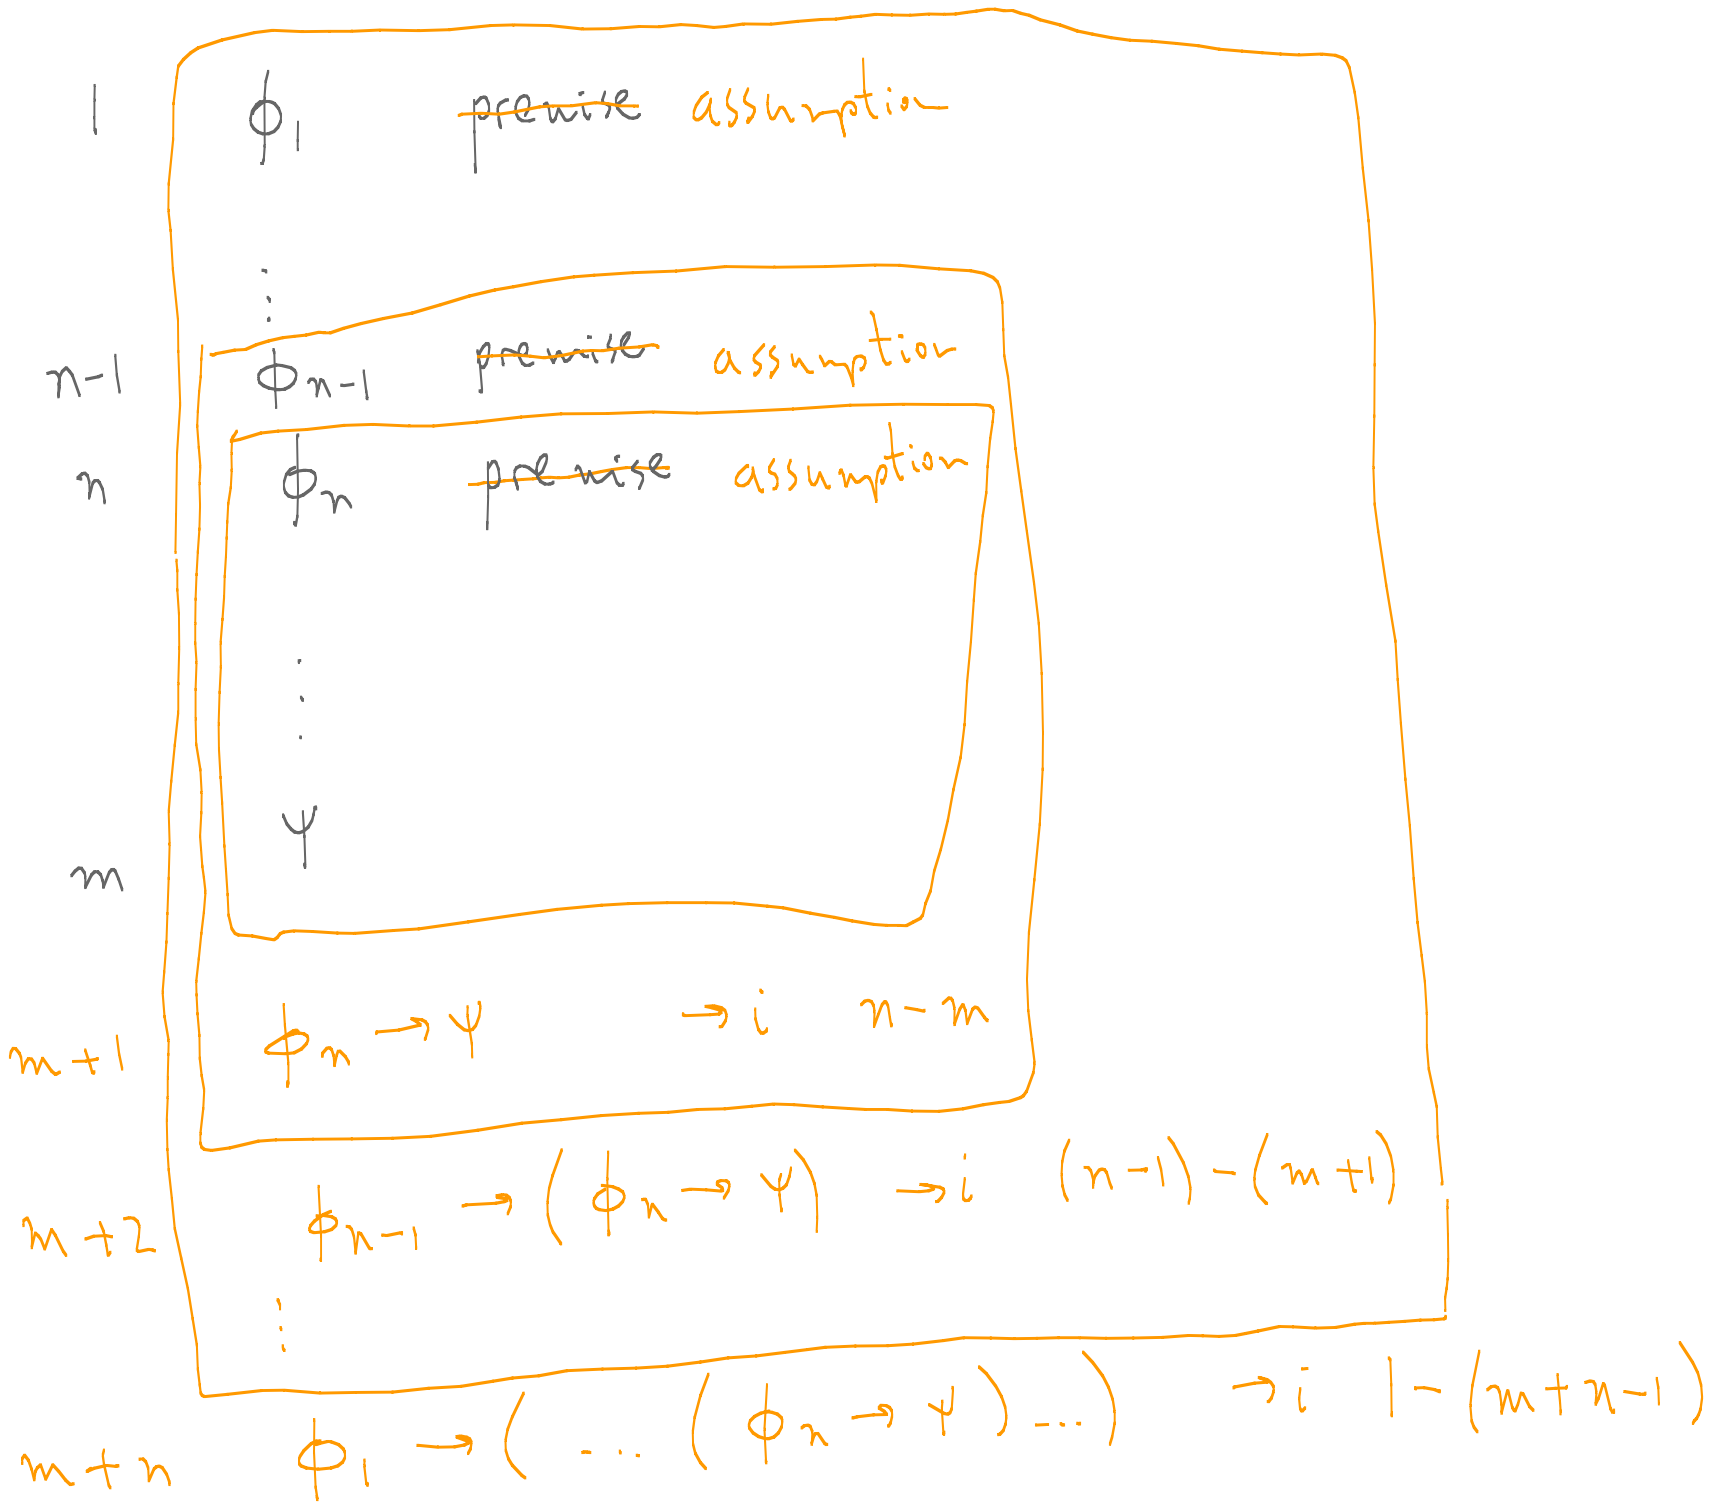 1 ϕ₁ premise assumption
⋮
n-1 ϕₙ₋₁ premise assumption
n ϕₙ premise assumption
⋮
m ψ
m+1 ϕₙ → ψ → i n - m
m+2 ϕₙ₋₁ → (ϕₙ → ψ) → i (n-1) - (m+1)
⋮
m+n ϕ₁ → ( ... (ϕₙ → ψ) ... ) → i 1 - (m+n-1)